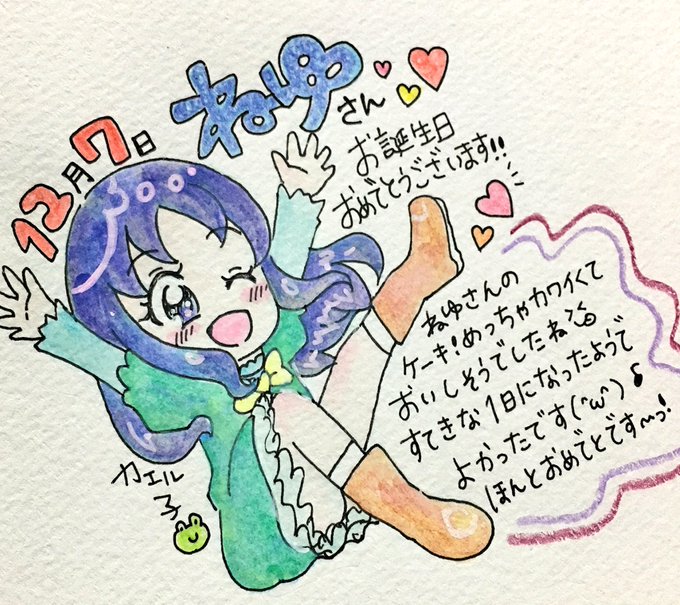 12月7日
ねゆさん
お誕生日
おめでとうございます!!
ねゆさんの
ケーキ!めっちゃカワイくて
おいしそうでしたね
すてきな1日になったようで
よかったです(^ω^)
ほんとおめでとです〜っ!
カエル
子